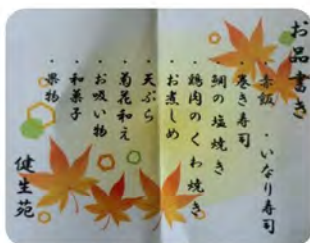 お品書き
・赤飯 ・いなり寿司
・巻き寿司
・鯛の塩焼き
・鶏肉のくわ焼き
・お煮しめ
・天ぷら
・菊花和え
・お吸い物
・和菓子
・果物
健生苑